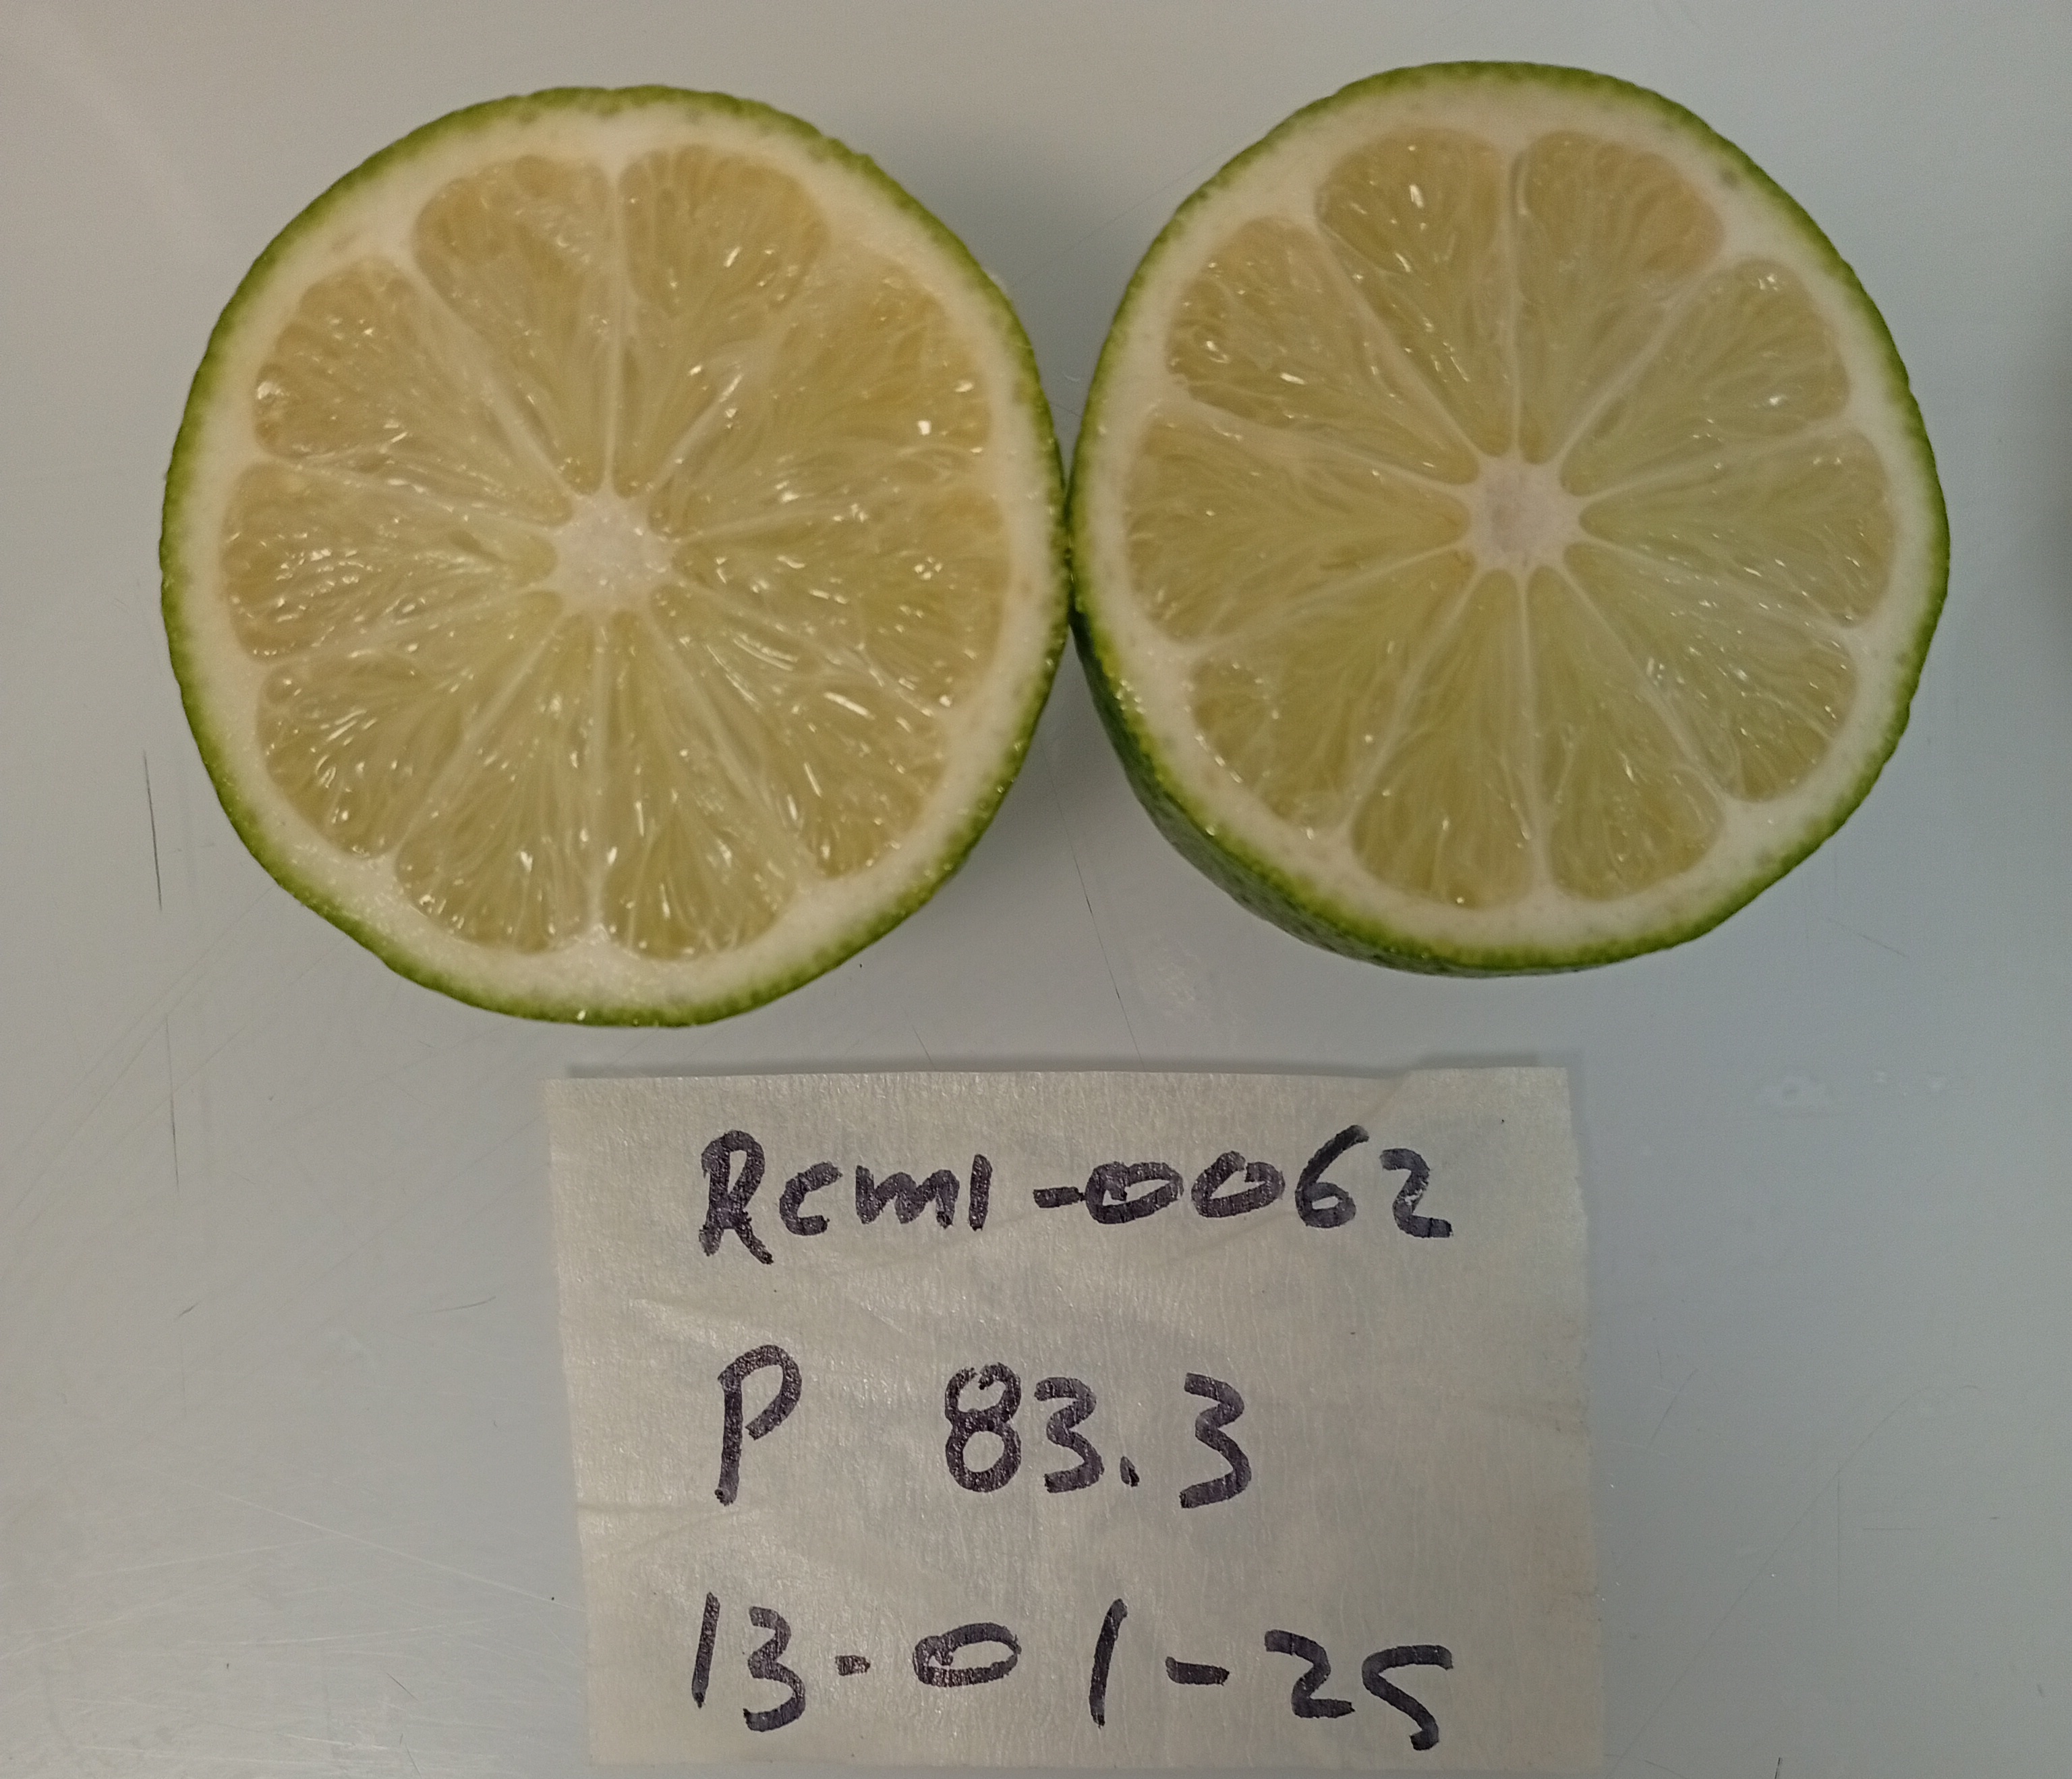 Rcm1-0062
P 83.3
13-01-25